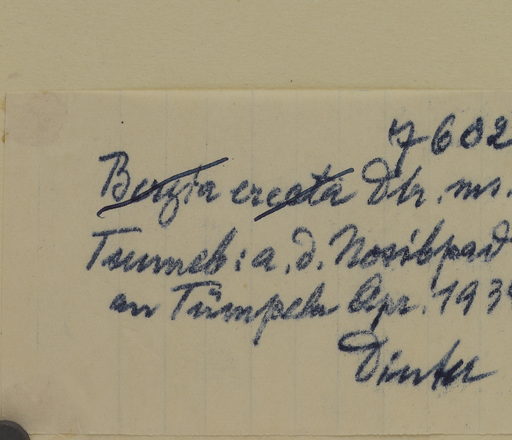 7602
Bergia erecta Dtr. ms.
Tsumeb: a. d. Nosibpad
an Tümpeln Apr. 193
Dinter